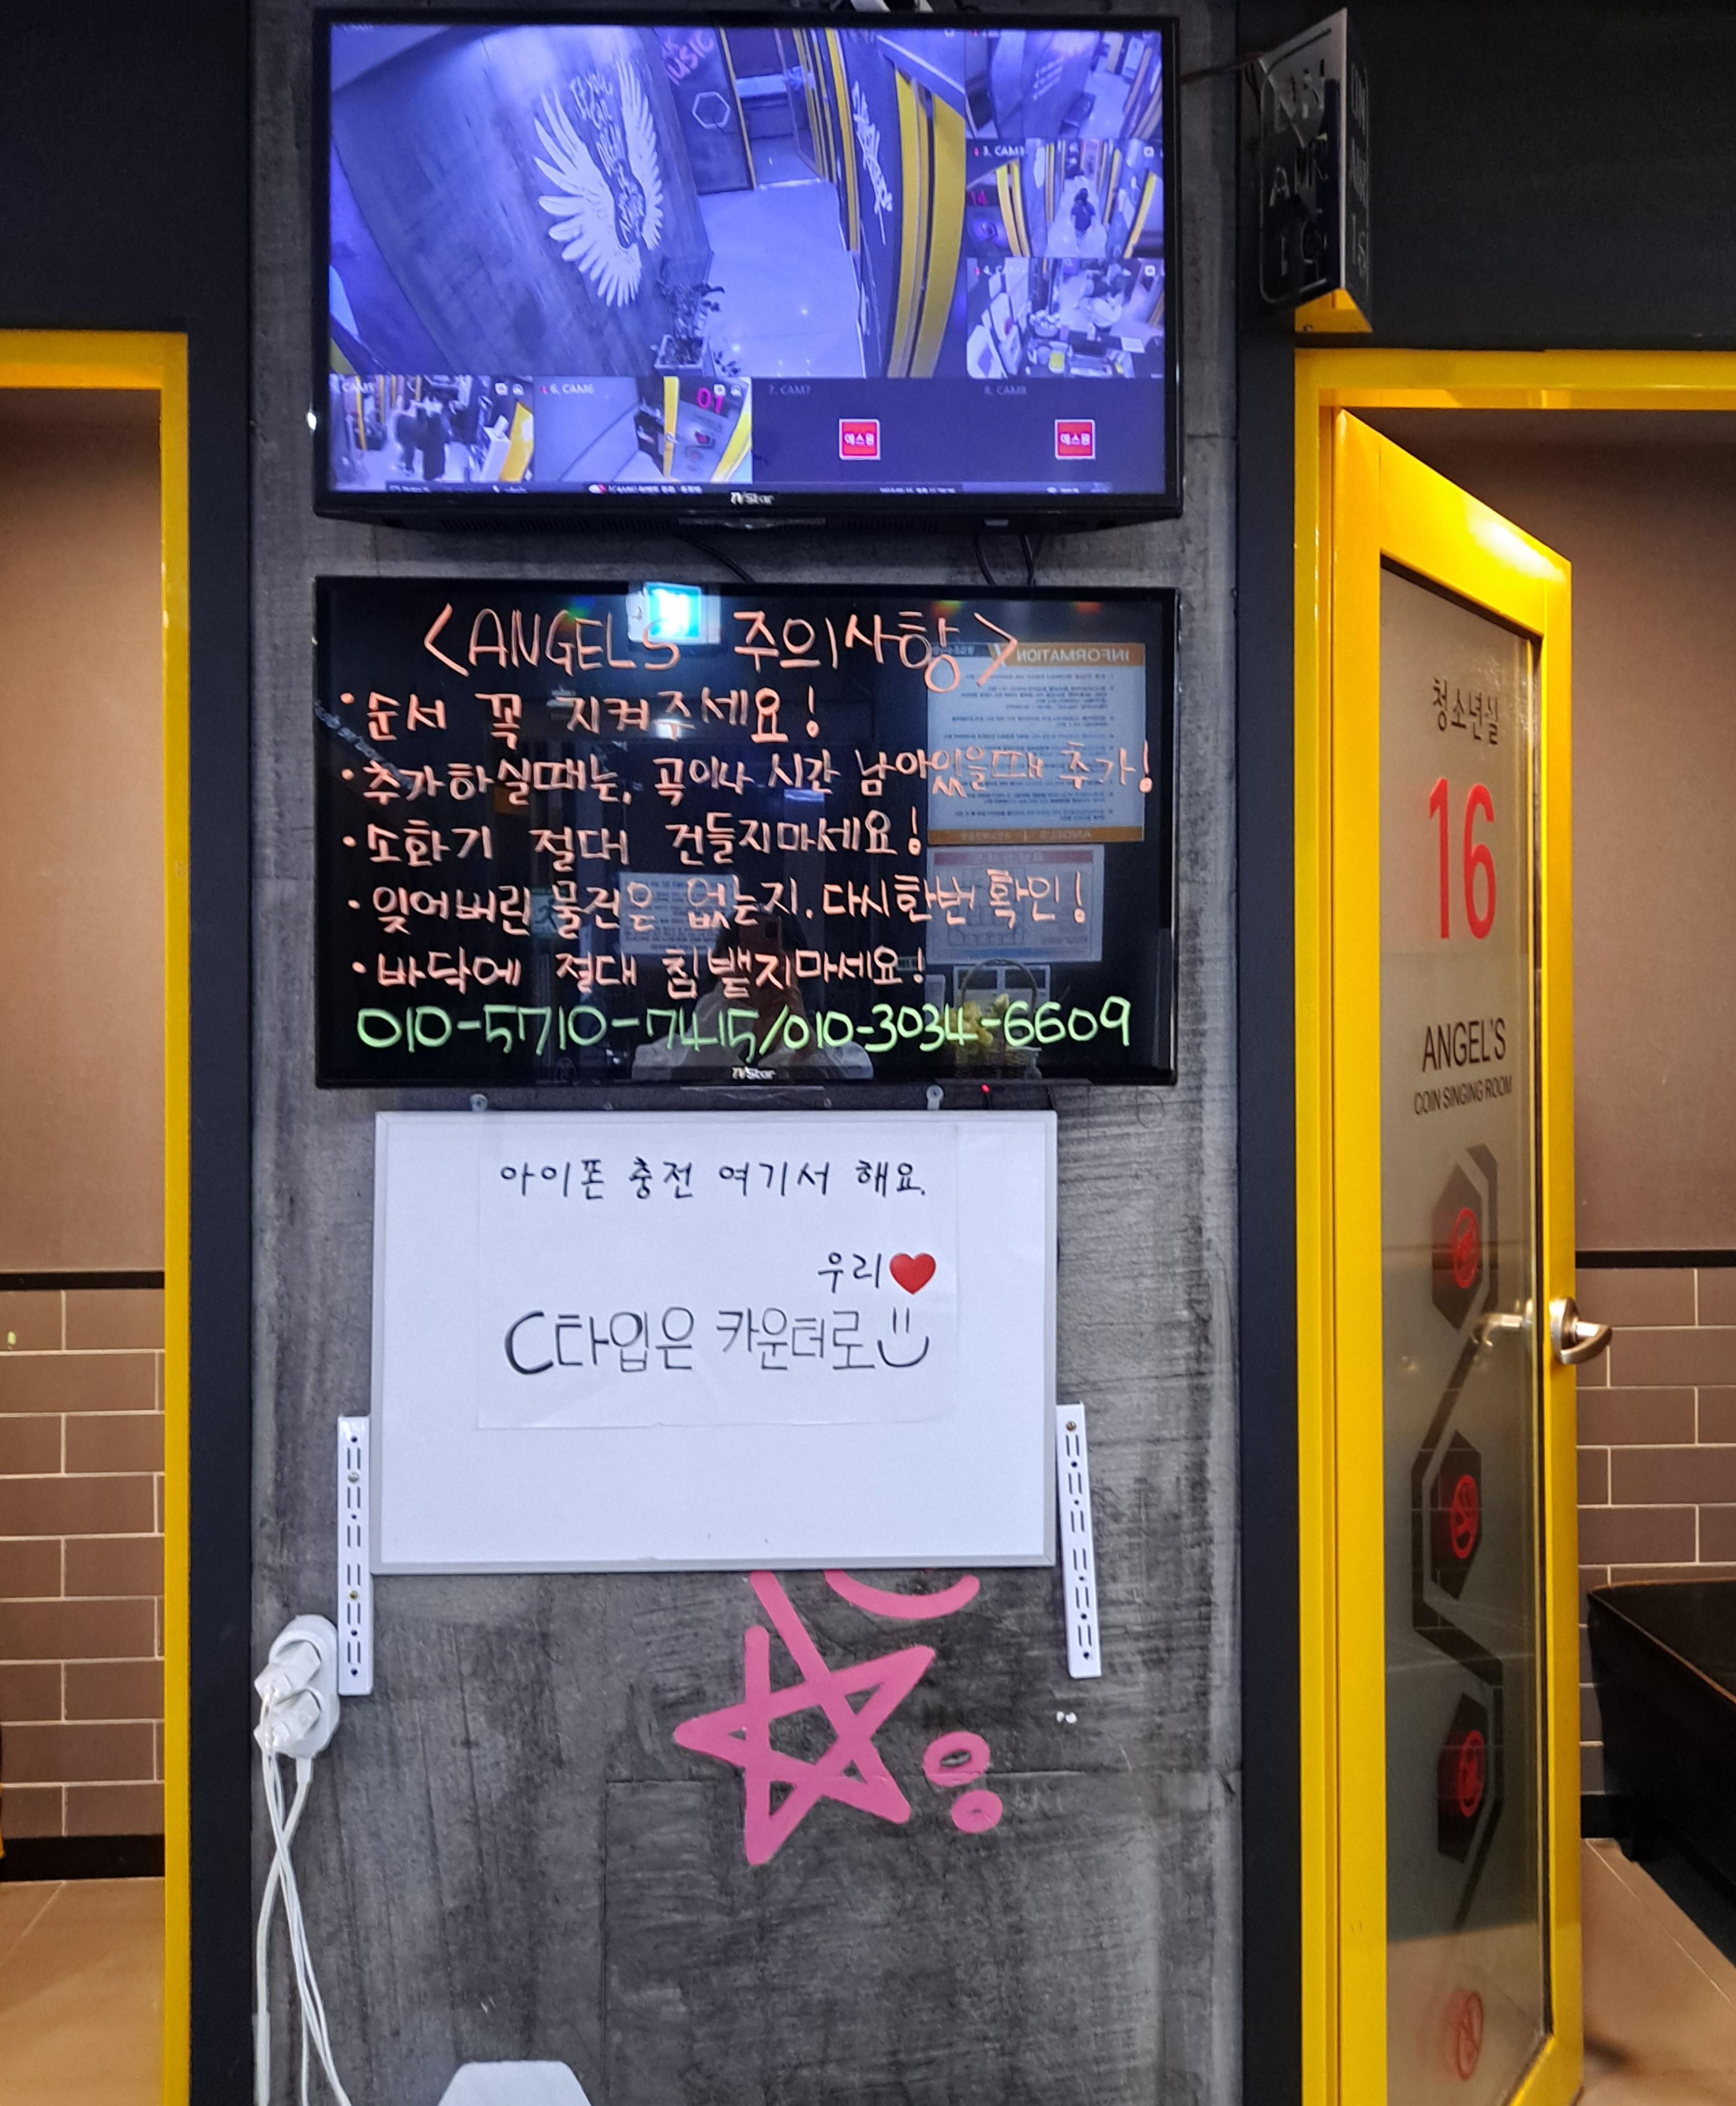 3. CAM3
14
6. CAM6
01
7. CAM7
에스원
8. CAM8
에스원
TVStar
<ANGELS 주의사항>
·순서 꼭 지켜주세요!
·추가하실때는, 곡이나 시간 남아있을때 추가!
·소화기 절대 건들지마세요!
·잊어버린 물건은 없는지. 다시한번 확인!
·바닥에 절대 침뱉지마세요!
010-5710-7415/010-3034-6609
TVStar
INFORMATION
아이폰 충전 여기서 해요.
우리❤
C타입은 카운터로
청소년실
16
ANGEL'S
COIN SINGING ROOM